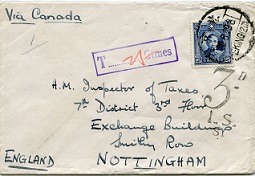 Via Canada
T
H.M. Inspector of Taxes
7th District 3rd Floor
Exchange Buildings
Smithy Row
NOTTINGHAM
ENGLAND
3D
I.S.